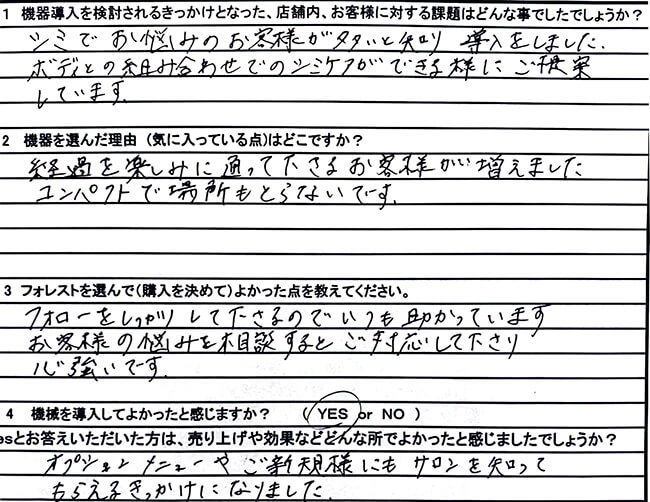 1 機器導入を検討されるきっかけとなった、店舗内、お客様に対する課題はどんな事でしたでしょうか？
シミでお悩みのお客様が多いと知り 導入をしました.
ボディとの組み合わせでのシミケアができる様に ご提案
しています.
2 機器を選んだ理由 (気に入っている点)はどこですか？
経過を楽しみに通って下さるお客様が増えました
コンパクトで場所もとらないです.
3 フォレストを選んで(購入を決めて)よかった点を教えてください。
フォローをしっかりして下さるのでいつも助かっています
お客様の悩みを相談するとご対応して下さり
心強いです.
4 機械を導入してよかったと感じますか？ ( YES or NO )
esとお答えいただいた方は、売り上げや効果などどんな所でよかったと感じましたでしょうか？
オプションメニューや ご新規様にも サロンを知って
もらえるきっかけになりました.